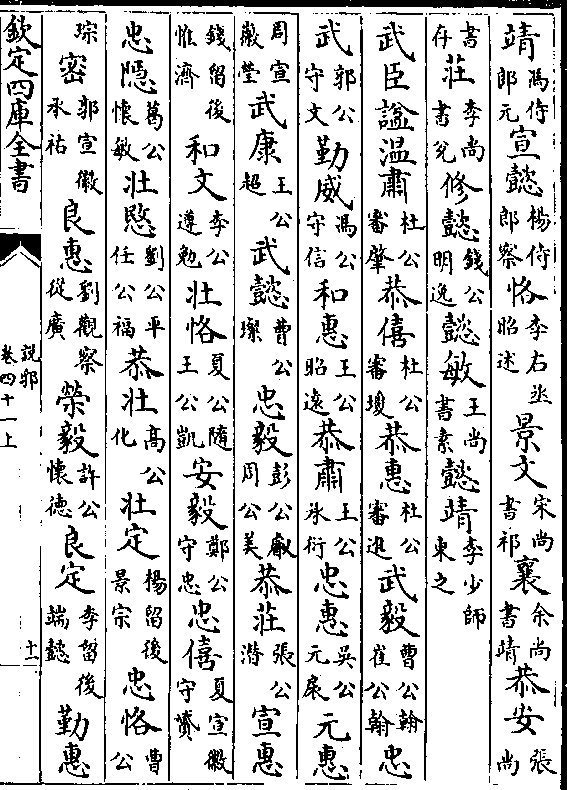 靖馮侍郎元宣懿楊侍郎察恪李右丞昭述景文宋尚書祁襄余尚書靖恭安張尚
書存莊李尚書兌修懿錢公明逸懿敏王尚書素懿靖李少師東之
武臣諡温肅杜公審肇恭僖杜公審瓊恭惠杜公審进武毅曹公翰崔公翰忠
武郭公守文勤威馮公守信和惠王公昭遠恭肅王公承衍忠惠吳公元扆元惠
周宣徽瑩武康王公超武懿曹公璨忠毅彭公叡周公美恭莊張公潛宣惠
錢留後惟濟和文李公遵勉壯恪夏公隨王公凱安毅鄭公守忠忠僖夏宣徽守贇
忠隱葛公懷敏壯愍劉公平任公福恭壯高公化壯定楊留後景宗忠恪曹公
琮密郭宣徽承祐良惠劉觀察從廣榮毅許公懷德良定李留後端懿勤惠
欽定四庫全書
說郛
卷四十一上
十一